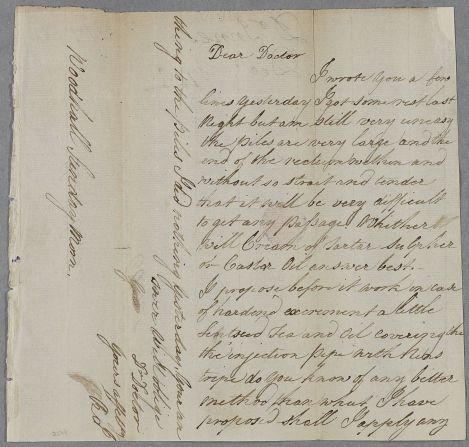 Dear Doctor
I wrote you a few
lines yesterday I got some rest last
Night but am still very uneasy
the piles are very large and the
end of the rectum within and
without so strait and tender
that it will be very difficult
to get any passage Whither
will Cream of tarter Sulpher
or Castor Oil answer best.
I propose before it work in case
of hardend excrement a little
lentseed Tea and Oil covering the
the injection pipe with
tripe do you know of any better
method than what I have
proposed shall I apply any
thing to the piles I did nothing yesterday
answer Will oblige
Dr Doctor
yours
Woodhall Sunday Morn.